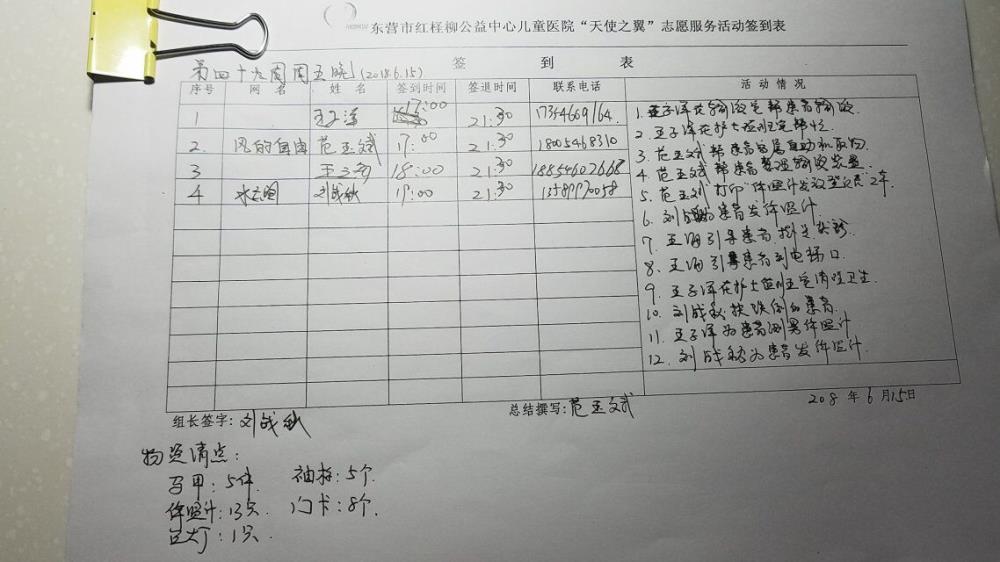 东营市红柽柳公益中心儿童医院“天使之翼”志愿服务活动签到表
签 到 表
第四十九周周五晚(2018.6.15)
序号 网 名 姓 名 签到时间 签退时间 联系电话 活动情况
1 王子泽 17:00 21:30 17354669164
2. 风的自由 范玉斌 17:00 21:30 18005468310
3 18:00 21:30 18854602668
4 刘战秋 19:00 21:30 13589990058
1. 王子泽在输液室帮患者输液.
2. 王子泽在护士站帮忙
3. 范玉斌帮患者自助机取物.
4. 范玉斌帮患者整理输液装置.
5. 范玉斌打印“体温计发放登记表”2本
6. 刘战秋为患者发体温计
7. 引导患者
8. 引导患者到电梯口
9. 王子泽在护士站清理卫生.
10. 刘战秋扶患者.
11. 王子泽为患者测量体温计
12. 刘战秋为患者发体温计.
组长签字: 刘战秋 总结撰写: 范玉斌 2018 年 6 月 15日
物资清点:
马甲: 5件. 袖标: 5个.
体温计: 13只. 门卡: 8个.
1只.